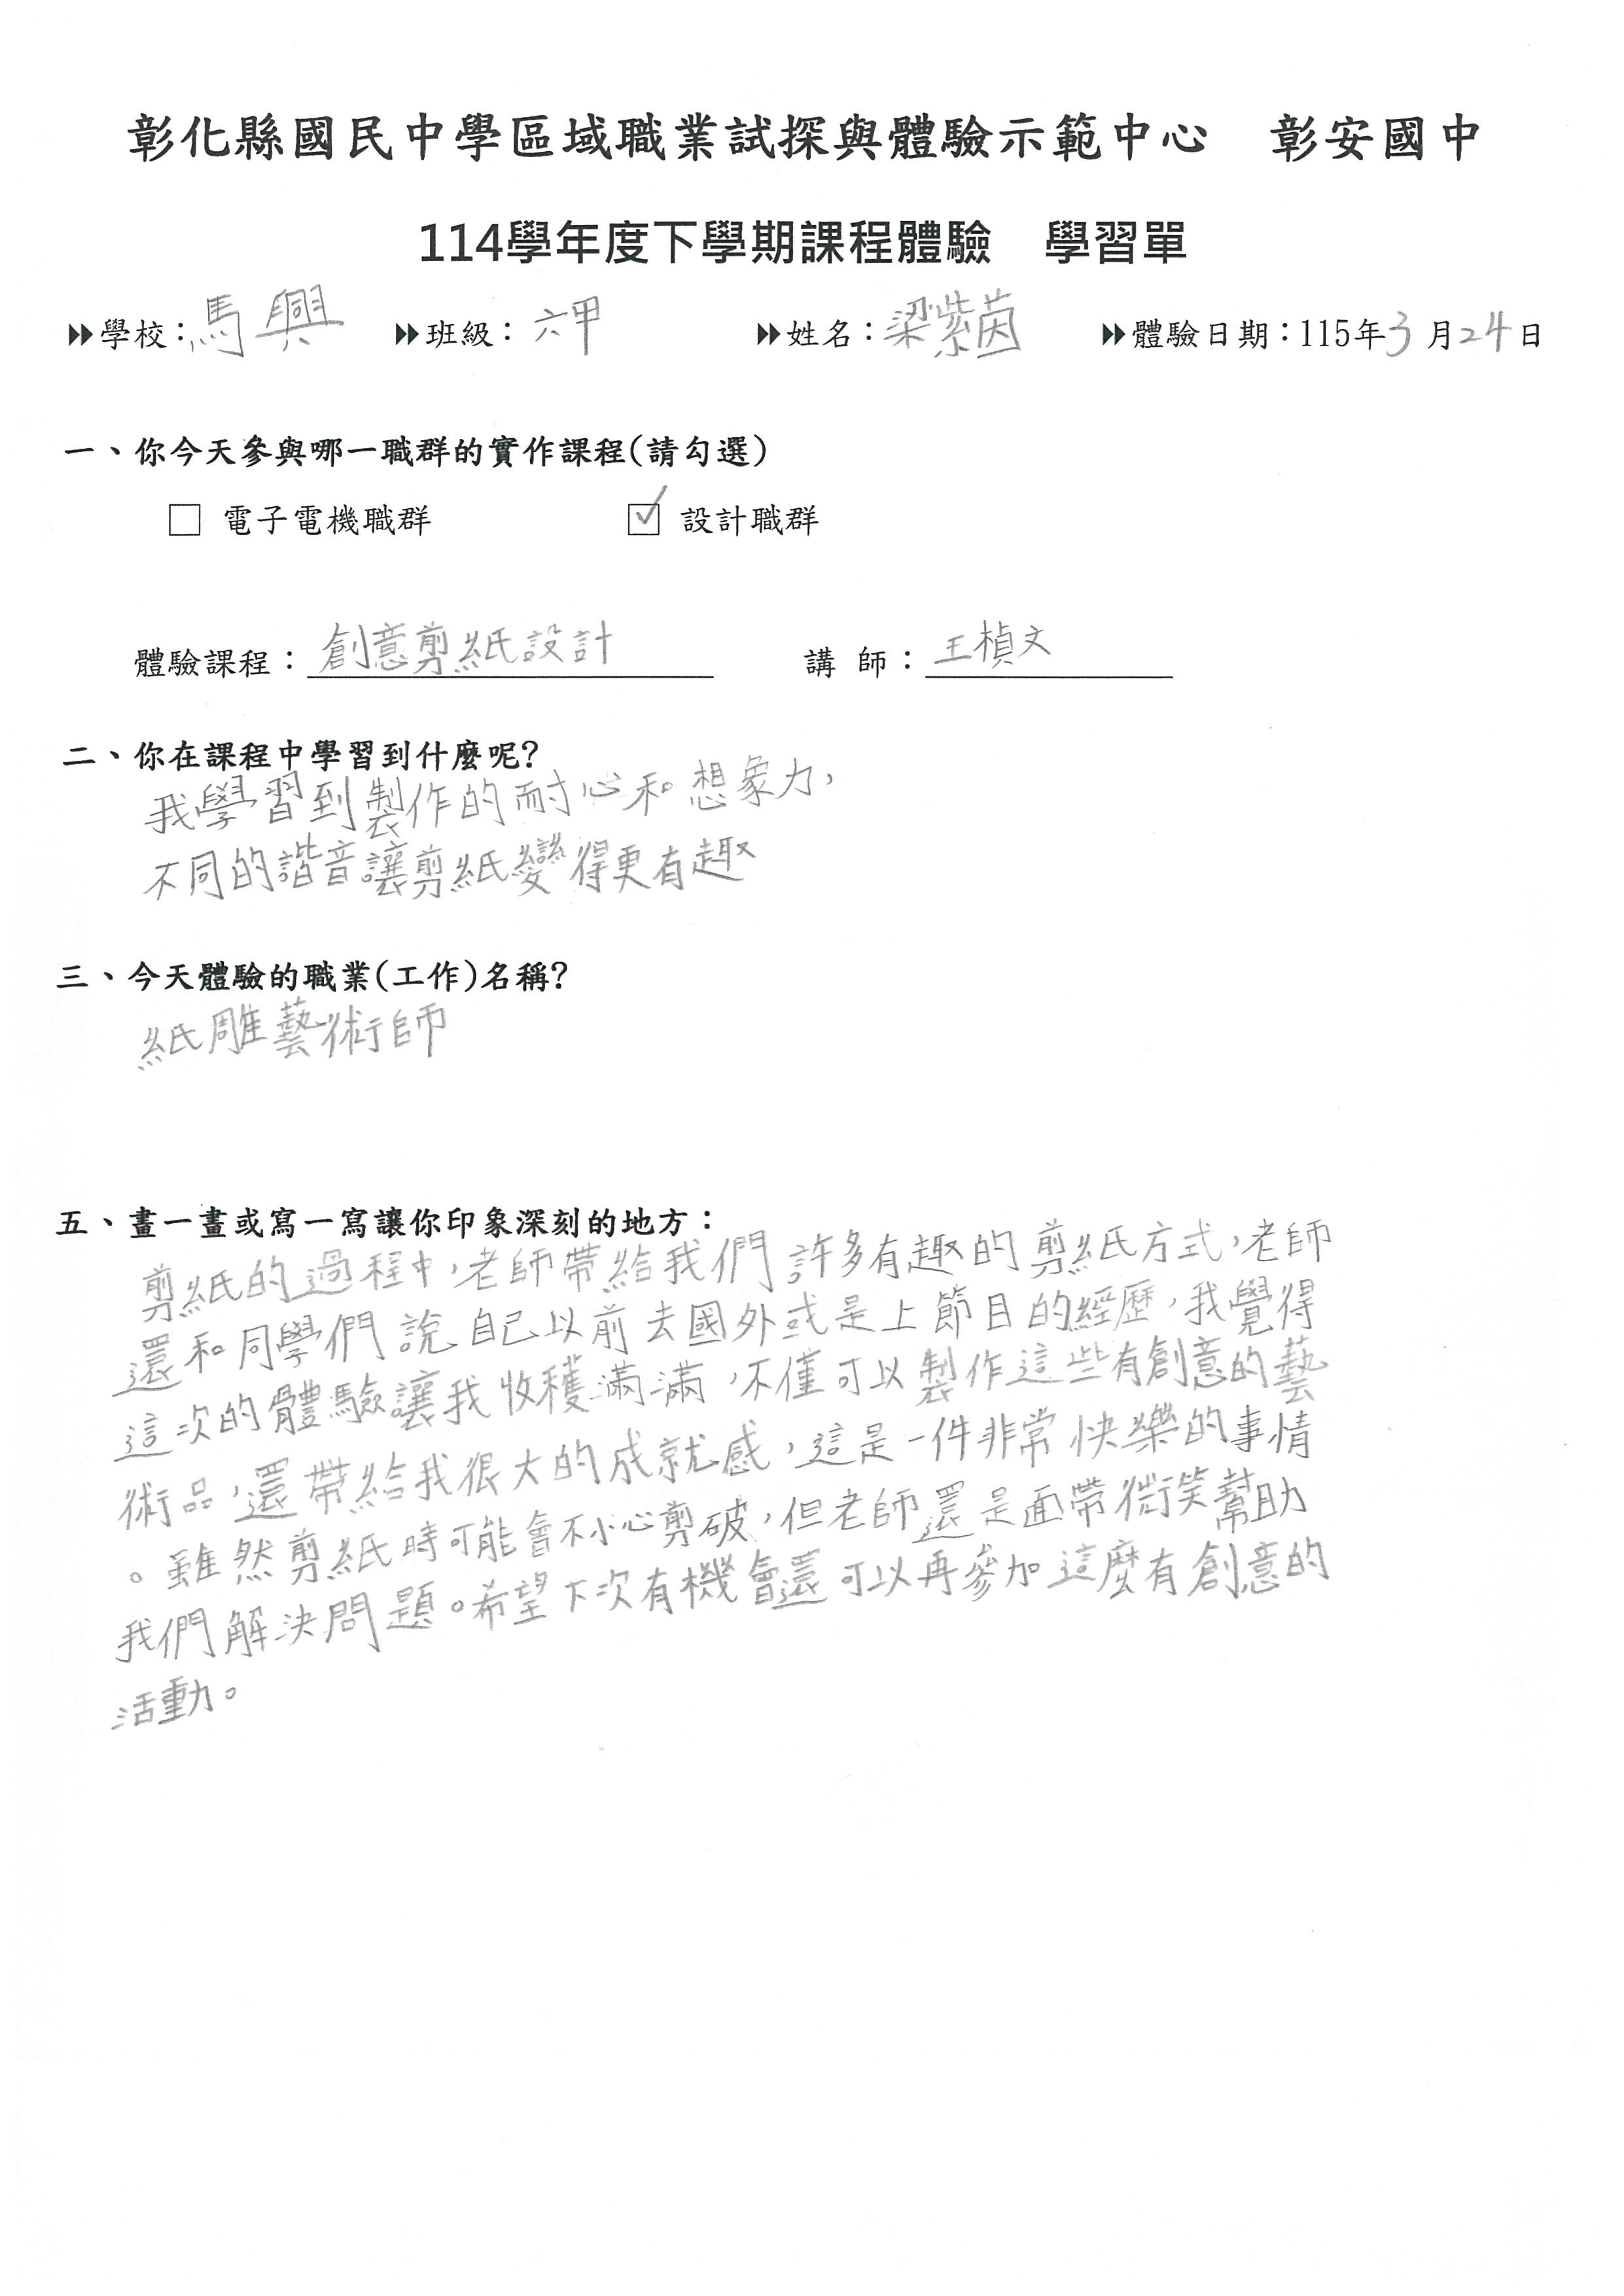 彰化縣國民中學區域職業試探與體驗示範中心　彰安國中
114學年度下學期課程體驗　學習單
學校：馬興　班級：六甲　姓名：梁紫茵　體驗日期：115年3月24日
一、你今天參與哪一職群的實作課程(請勾選)
□ 電子電機職群　☑ 設計職群
體驗課程：創意剪紙設計　講 師：王楨文
二、你在課程中學習到什麼呢?
我學習到製作的耐心和想象力，
不同的諧音讓剪紙變得更有趣
三、今天體驗的職業(工作)名稱?
紙雕藝術師
五、畫一畫或寫一寫讓你印象深刻的地方：
剪紙的過程中，老師帶給我們許多有趣的剪紙方式，老師
還和同學們說自己以前去國外或是上節目的經歷，我覺得
這次的體驗讓我收穫滿滿，不僅可以製作這些有創意的藝
術品，還帶給我很大的成就感，這是一件非常快樂的事情
。雖然剪紙時可能會不小心剪破，但老師還是面帶微笑幫助
我們解決問題。希望下次有機會還可以再參加這麼有創意的
活動。